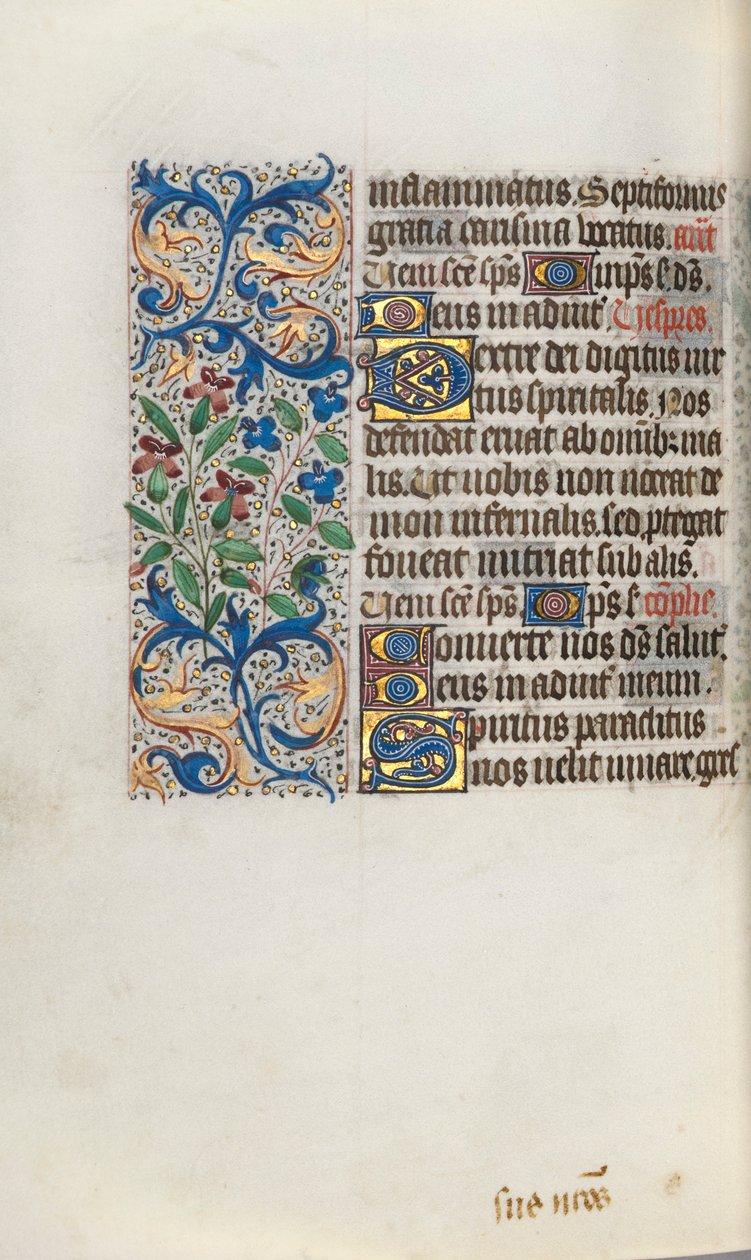 inflammatus. Septiformis
gratia carisma vocatus. añt
Veni scē sp̄s O m̄p̄s s. dš.
Deus in adiut. Vespres.
Dextre dei digitus vir
tus spiritalis. Nos
defendat eruat ab omībꝫ ma
lis. Ut nobis non noceat de
mon infernalis. sed ꝓtegat
foveat nutriat sub alis.
Veni scē sp̄s. O p̄s s cōplie.
Converte nos dš salut.
Deus in adiut meum.
Spiritus paraclitus
nos velit iuvare. gres